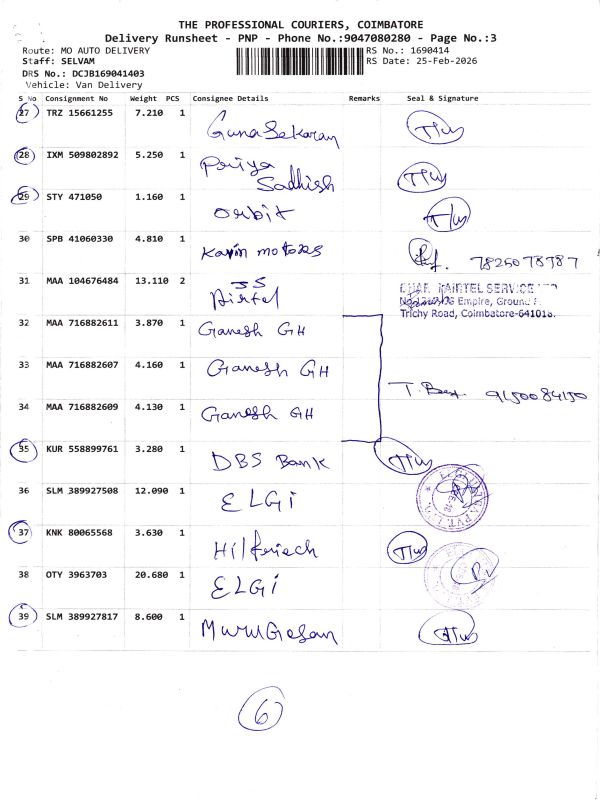 THE PROFESSIONAL COURIERS, COIMBATORE
Delivery Runsheet - PNP - Phone No.:9047080280 - Page No.:3
Route: MO AUTO DELIVERY RS No.: 1690414
Staff: SELVAM RS Date: 25-Feb-2026
DRS No.: DCJB169041403
Vehicle: Van Delivery
S No Consignment No Weight PCS Consignee Details Remarks Seal & Signature
27 TRZ 15661255 7.210 1 GunaSekaran
28 IXM 509802892 5.250 1 Priya Sadhish
29 STY 471050 1.160 1 Orbit
30 SPB 41060330 4.810 1 Kavin motors
31 MAA 104676484 13.110 2 JS Airtel
AIRTEL SERVICE
Empire, Ground
Trichy Road, Coimbatore-641018.
32 MAA 716882611 3.870 1 Ganesh GH
33 MAA 716882607 4.160 1 Ganesh GH
34 MAA 716882609 4.130 1 Ganesh GH
35 KUR 558899761 3.280 1 DBS Bank
36 SLM 389927508 12.090 1 ELGi
37 KNK 80065568 3.630 1
38 OTY 3963703 20.680 1 ELGi
39 SLM 389927817 8.600 1 MuruGesan
6